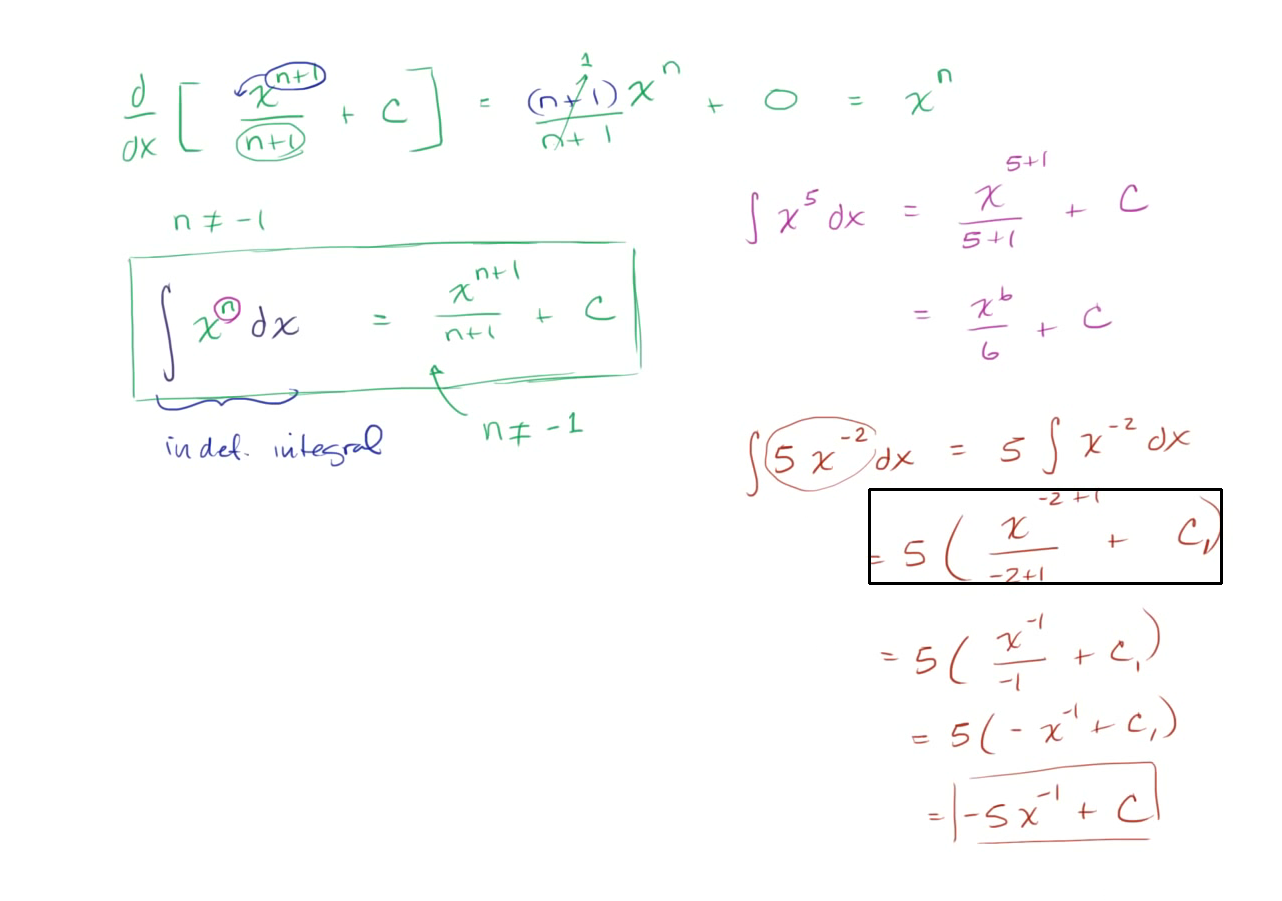 d/dx [ x^(n+1)/(n+1) + C ] = (n+1)/(n+1) 1 x^n + 0 = x^n
n ≠ -1
∫ x^n dx = x^(n+1)/(n+1) + C
indef. integral
n ≠ -1
∫ x^5 dx = x^(5+1)/(5+1) + C
= x^6/6 + C
∫ 5 x^(-2) dx = 5 ∫ x^(-2) dx
= 5 ( x^(-2+1)/(-2+1) + C₁)
= 5 ( x^(-1)/(-1) + C₁)
= 5 ( - x^(-1) + C₁)
= -5x^(-1) + C